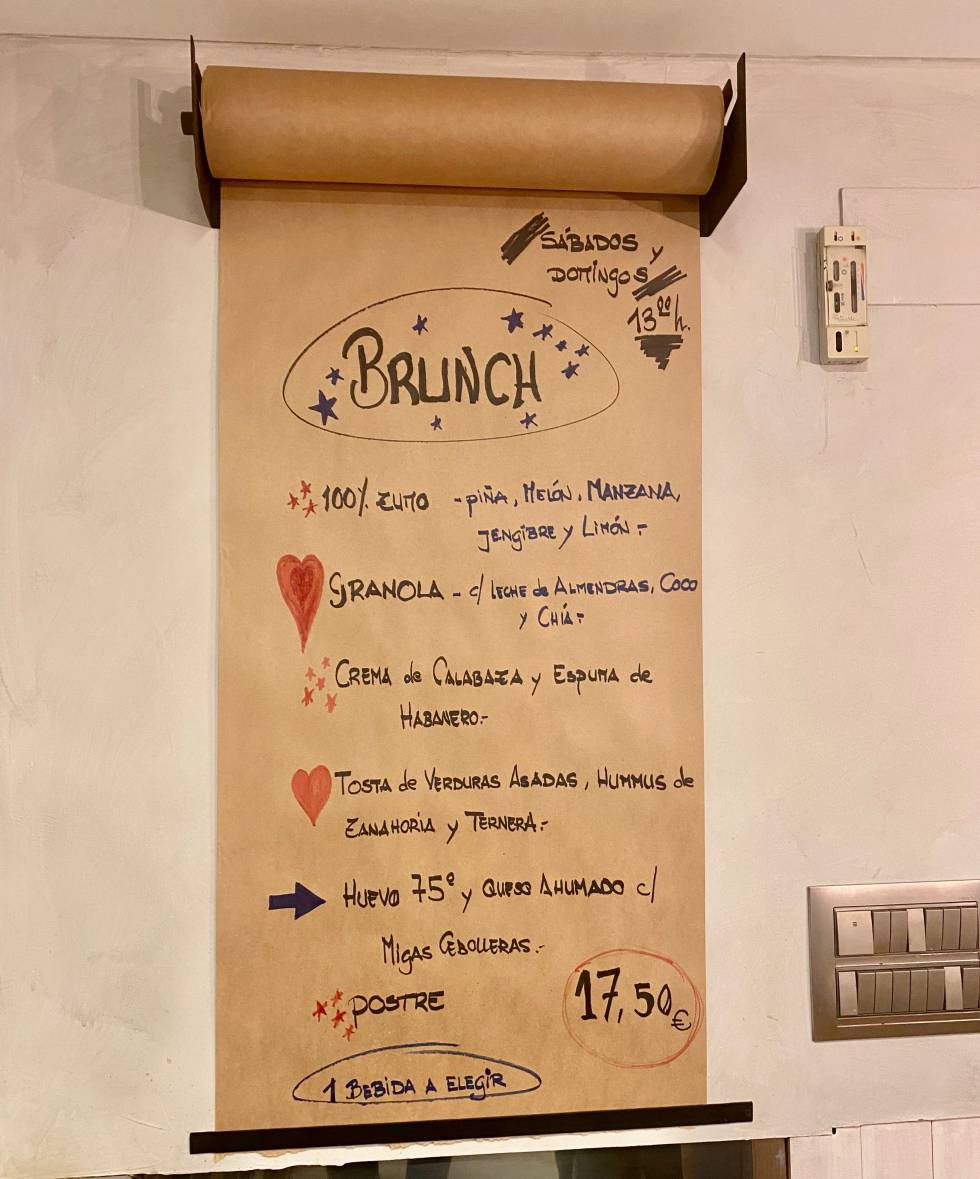 SÁBADOS y
DOMINGOS
13⁰⁰h.
BRUNCH
100% ZUMO - PIÑA, MELÓN, MANZANA,
JENGIBRE y LIMÓN.-
GRANOLA - c/ LECHE de ALMENDRAS, COCO
y CHÍA.-
CREMA de CALABAZA y ESPUMA de
HABANERO.-
TOSTA de VERDURAS ASADAS, HUMMUS de
ZANAHORIA y TERNERA.-
HUEVO 75º y QUESO AHUMADO c/
MIGAS CEBOLLERAS.-
POSTRE
17,50€
1 BEBIDA A ELEGIR